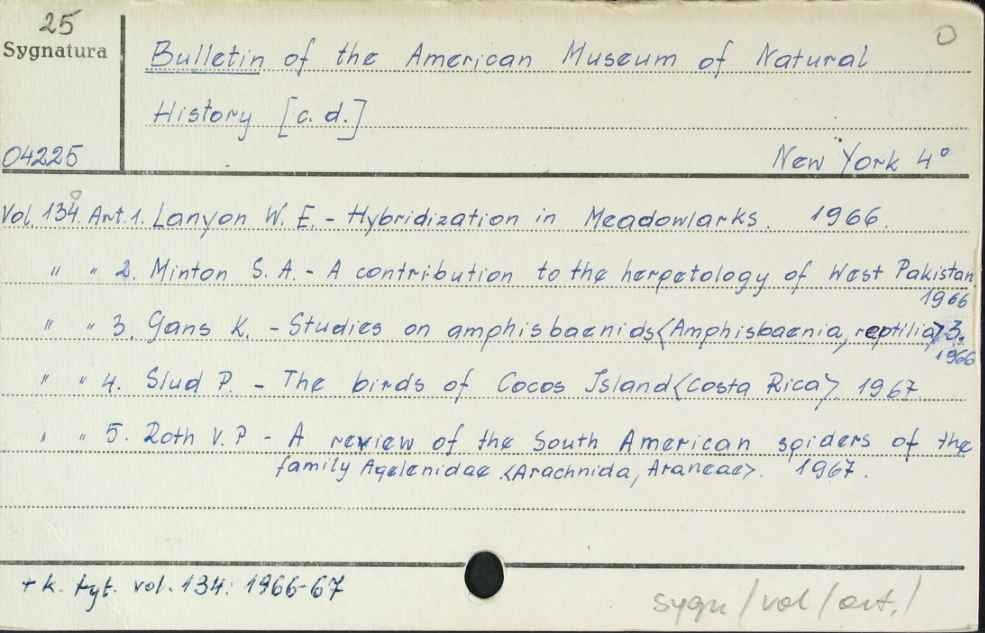 25
O
Sygnatura
Bulletin of the American Museum of Natural
History [c. d.]
04225
New York 4°
Vol. 134. Art. 1. Lanyon W. E. - Hybridization in Meadowlarks. 1966.
" " 2. Minton S. A. - A contribution to the herpetology of West Pakistan
1966
" " 3. Gans K. - Studies on amphisbaenids <Amphisbaenia, reptilia> 3.
1966
" " 4. Slud P. - The birds of Cocos Island <Costa Rica> 1967.
" " 5. Roth V. P - A review of the South American spiders of the
family Agelenidae <Arachnida, Araneae>. 1967.
+ k. tyt. vol. 134: 1966-67
sygn / vol / art. /